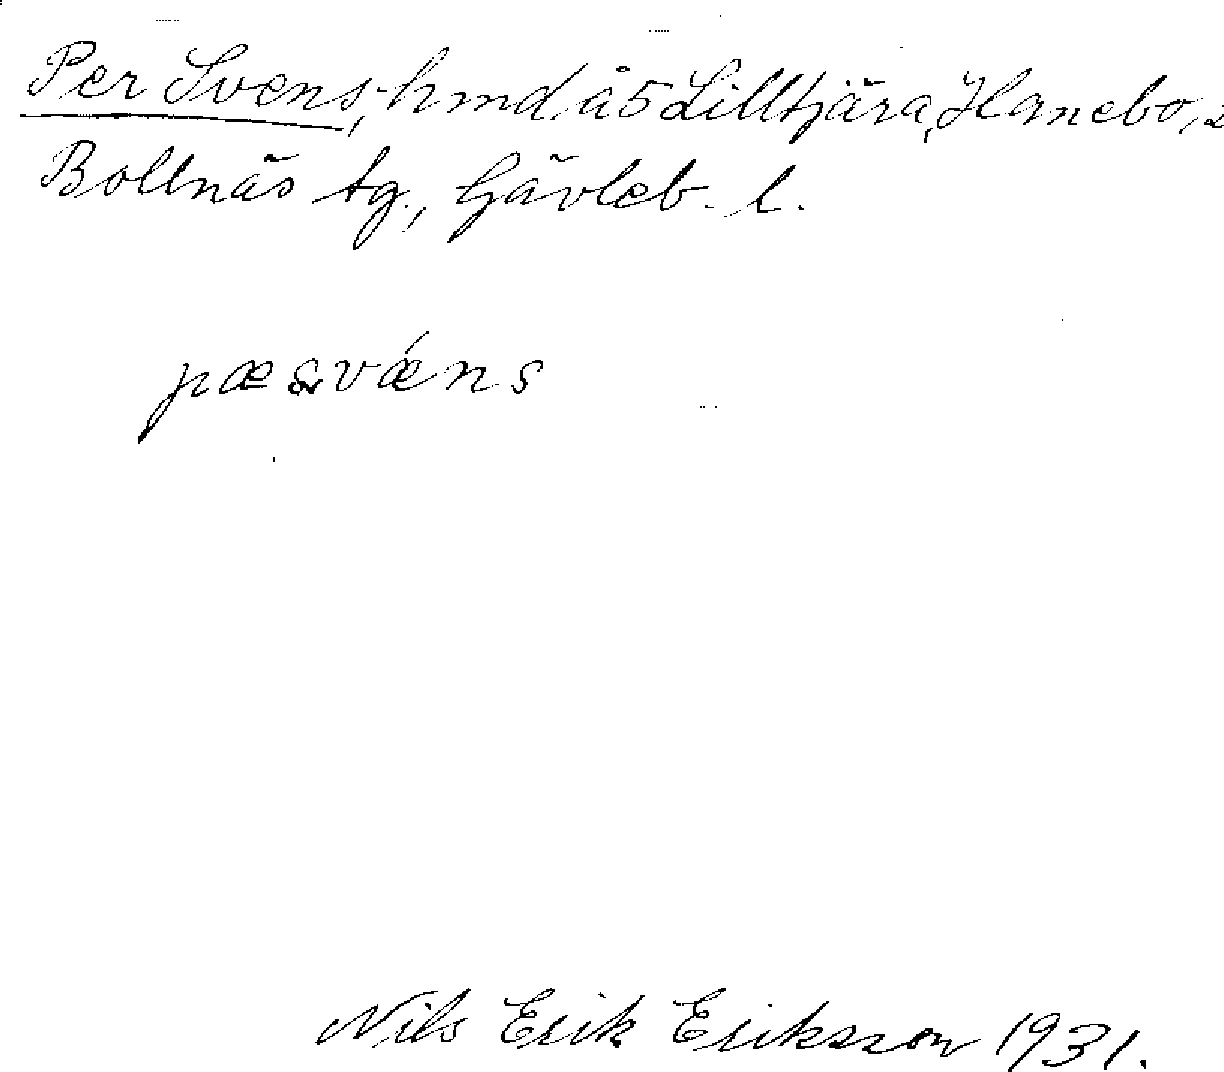 Per Svens, hmd å 5 Lilltjära, Hanebo,
Bollnäs tg., Gävleb. l.
Nils Erik Eriksson 1931.